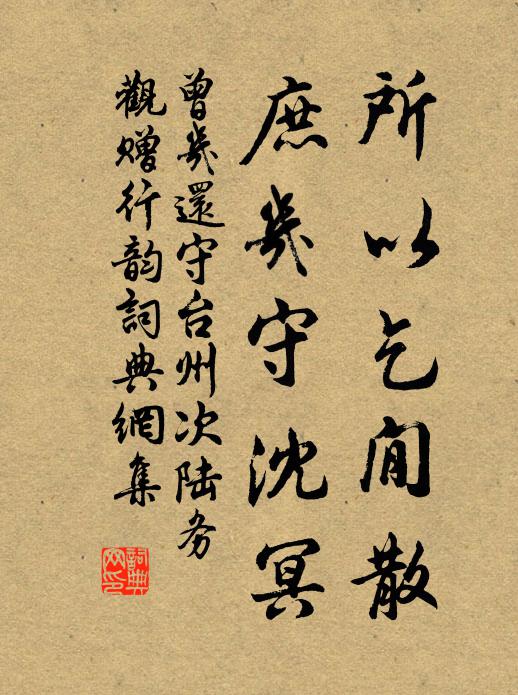 所以乞閒散
庶幾守沈冥
曾幾還守台州次陆务
觀赠行韵詞典網集
詞典
网印